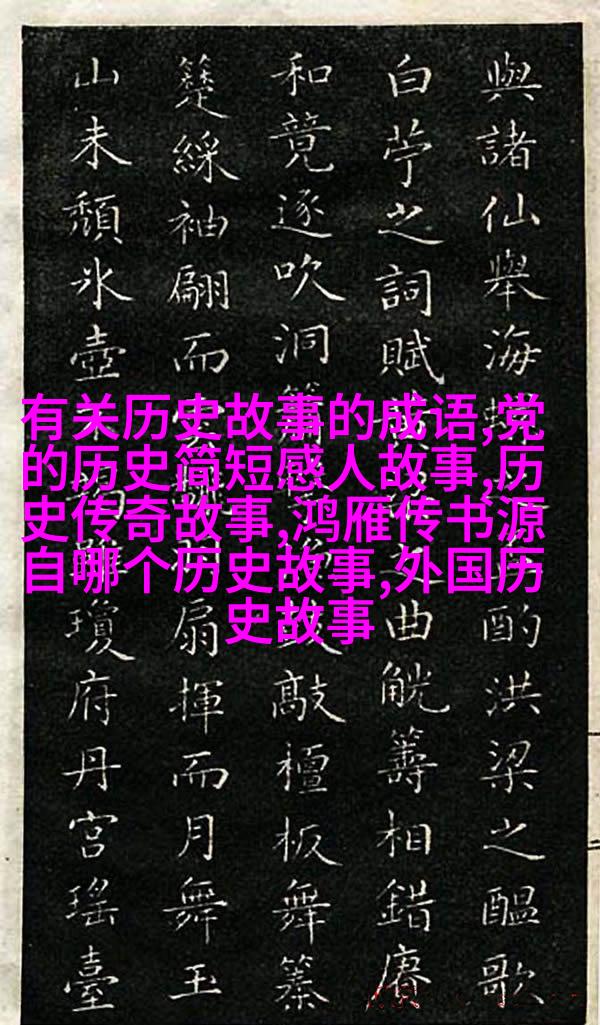 有关历史故事的成语,党
的历史简短感人故事,历
史传奇故事,鸿雁传书源
自哪个历史故事,外国历
史故事
與諸仙舉海酌洪梁之醞歌
白苧之詞賦曲觥籌相錯賡
和竟逐吹洞敲檀板舞
綵袖翩而扇揮而月舞玉
山未頹氷壺瓊府丹宮瑤臺